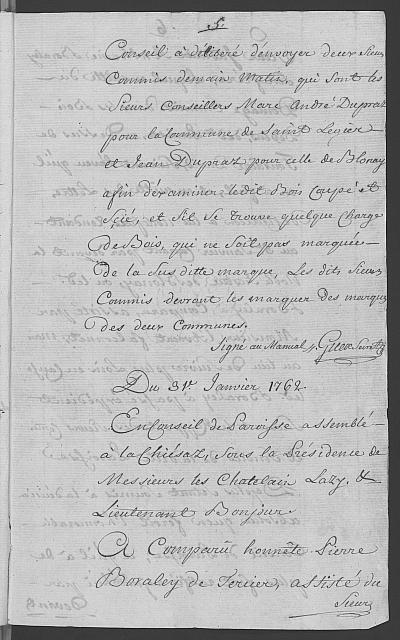 5.
Conseil à déliberé d'envoyer deux Sieurs
Commis demain Matin, qui sont les
Sieurs Conseillers Marc André Dupraz
pour la Commune de Saint Legier
et Jean Dupraz pour celle de Blonay
afin d'éxaminer ledit Bois Coupé et
Scié, et s'il se trouve quelque Charge
de Bois, qui ne soit pas marquée
de la Sus ditte marque, Les dits Sieurs
Commis devront les marquer des marques
des deux Communes.
Signé au Manual
Du 31e Janvier 1762.
En Conseil de Paroisse assemblé
à la Chiésaz, sous la Présidence de
Messieurs les Chatelain Lazy, &
Lieutenant Bonjour
A Comparû honnête Pierre
Boraley de Tercier, assisté du
Sieur